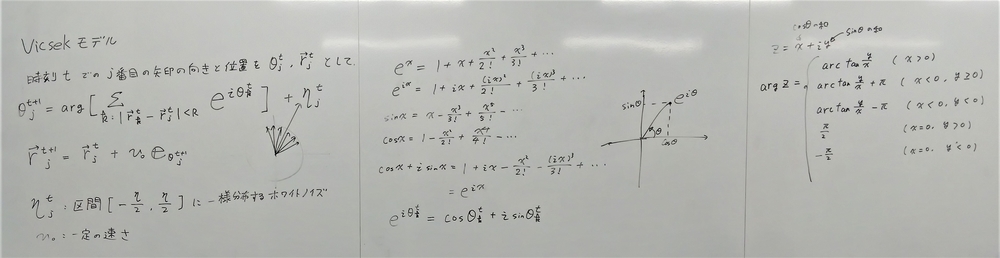 Vicsek モデル
時刻 t での j 番目の矢印の向きと位置を θ_j^t, r⃗_j^t として.
θ_j^{t+1} = arg[ Σ_{k:|r⃗_k^t - r⃗_j^t|<R} e^{iθ_k^t} ] + η_j^t
r⃗_j^{t+1} = r⃗_j^t + v₀ e_{θ_j^{t+1}}
η_j^t : 区間 [-η/2, η/2] に一様分布するホワイトノイズ
v₀ : 一定の速さ
e^x = 1 + x + x²/2! + x³/3! + ...
e^{ix} = 1 + ix + (ix)²/2! + (ix)³/3! + ...
sin x = x - x³/3! + x⁵/5! - ...
cos x = 1 - x²/2! + x⁴/4! - ...
cos x + i sin x = 1 + ix - x²/2! - (ix)³/3! + ...
= e^{ix}
e^{iθ_k^t} = cosθ_k^t + i sinθ_k^t
sinθ
e^{iθ}
θ
cosθ
cosθの和
sinθの和
z = x + iy
arg z =
arctan y/x (x>0)
arctan y/x + π (x<0, y≥0)
arctan y/x - π (x<0, y<0)
π/2 (x=0, y>0)
-π/2 (x=0, y<0)